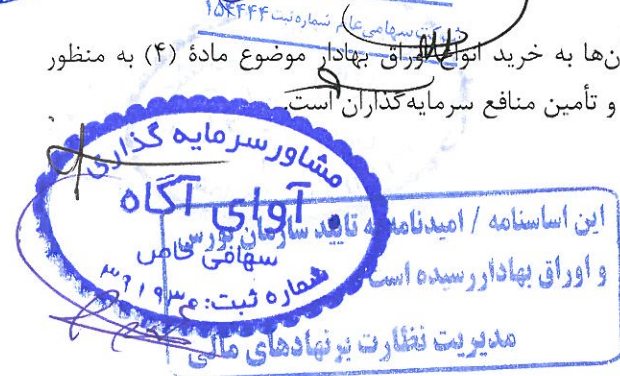 شرکت سهامی عام شماره ثبت ۱۵۴۴۴۴
ن‌ها به خرید انواع اوراق بهادار موضوع مادهٔ (۴) به منظور
و تأمین منافع سرمایه‌گذاران است.
مشاور سرمایه گذاری
آوای آگاه
سهامی خاص
شماره ثبت:
این اساسنامه / امیدنامه به تایید سازمان بورس
و اوراق بهادار رسیده است
مدیریت نظارت بر نهادهای مالی